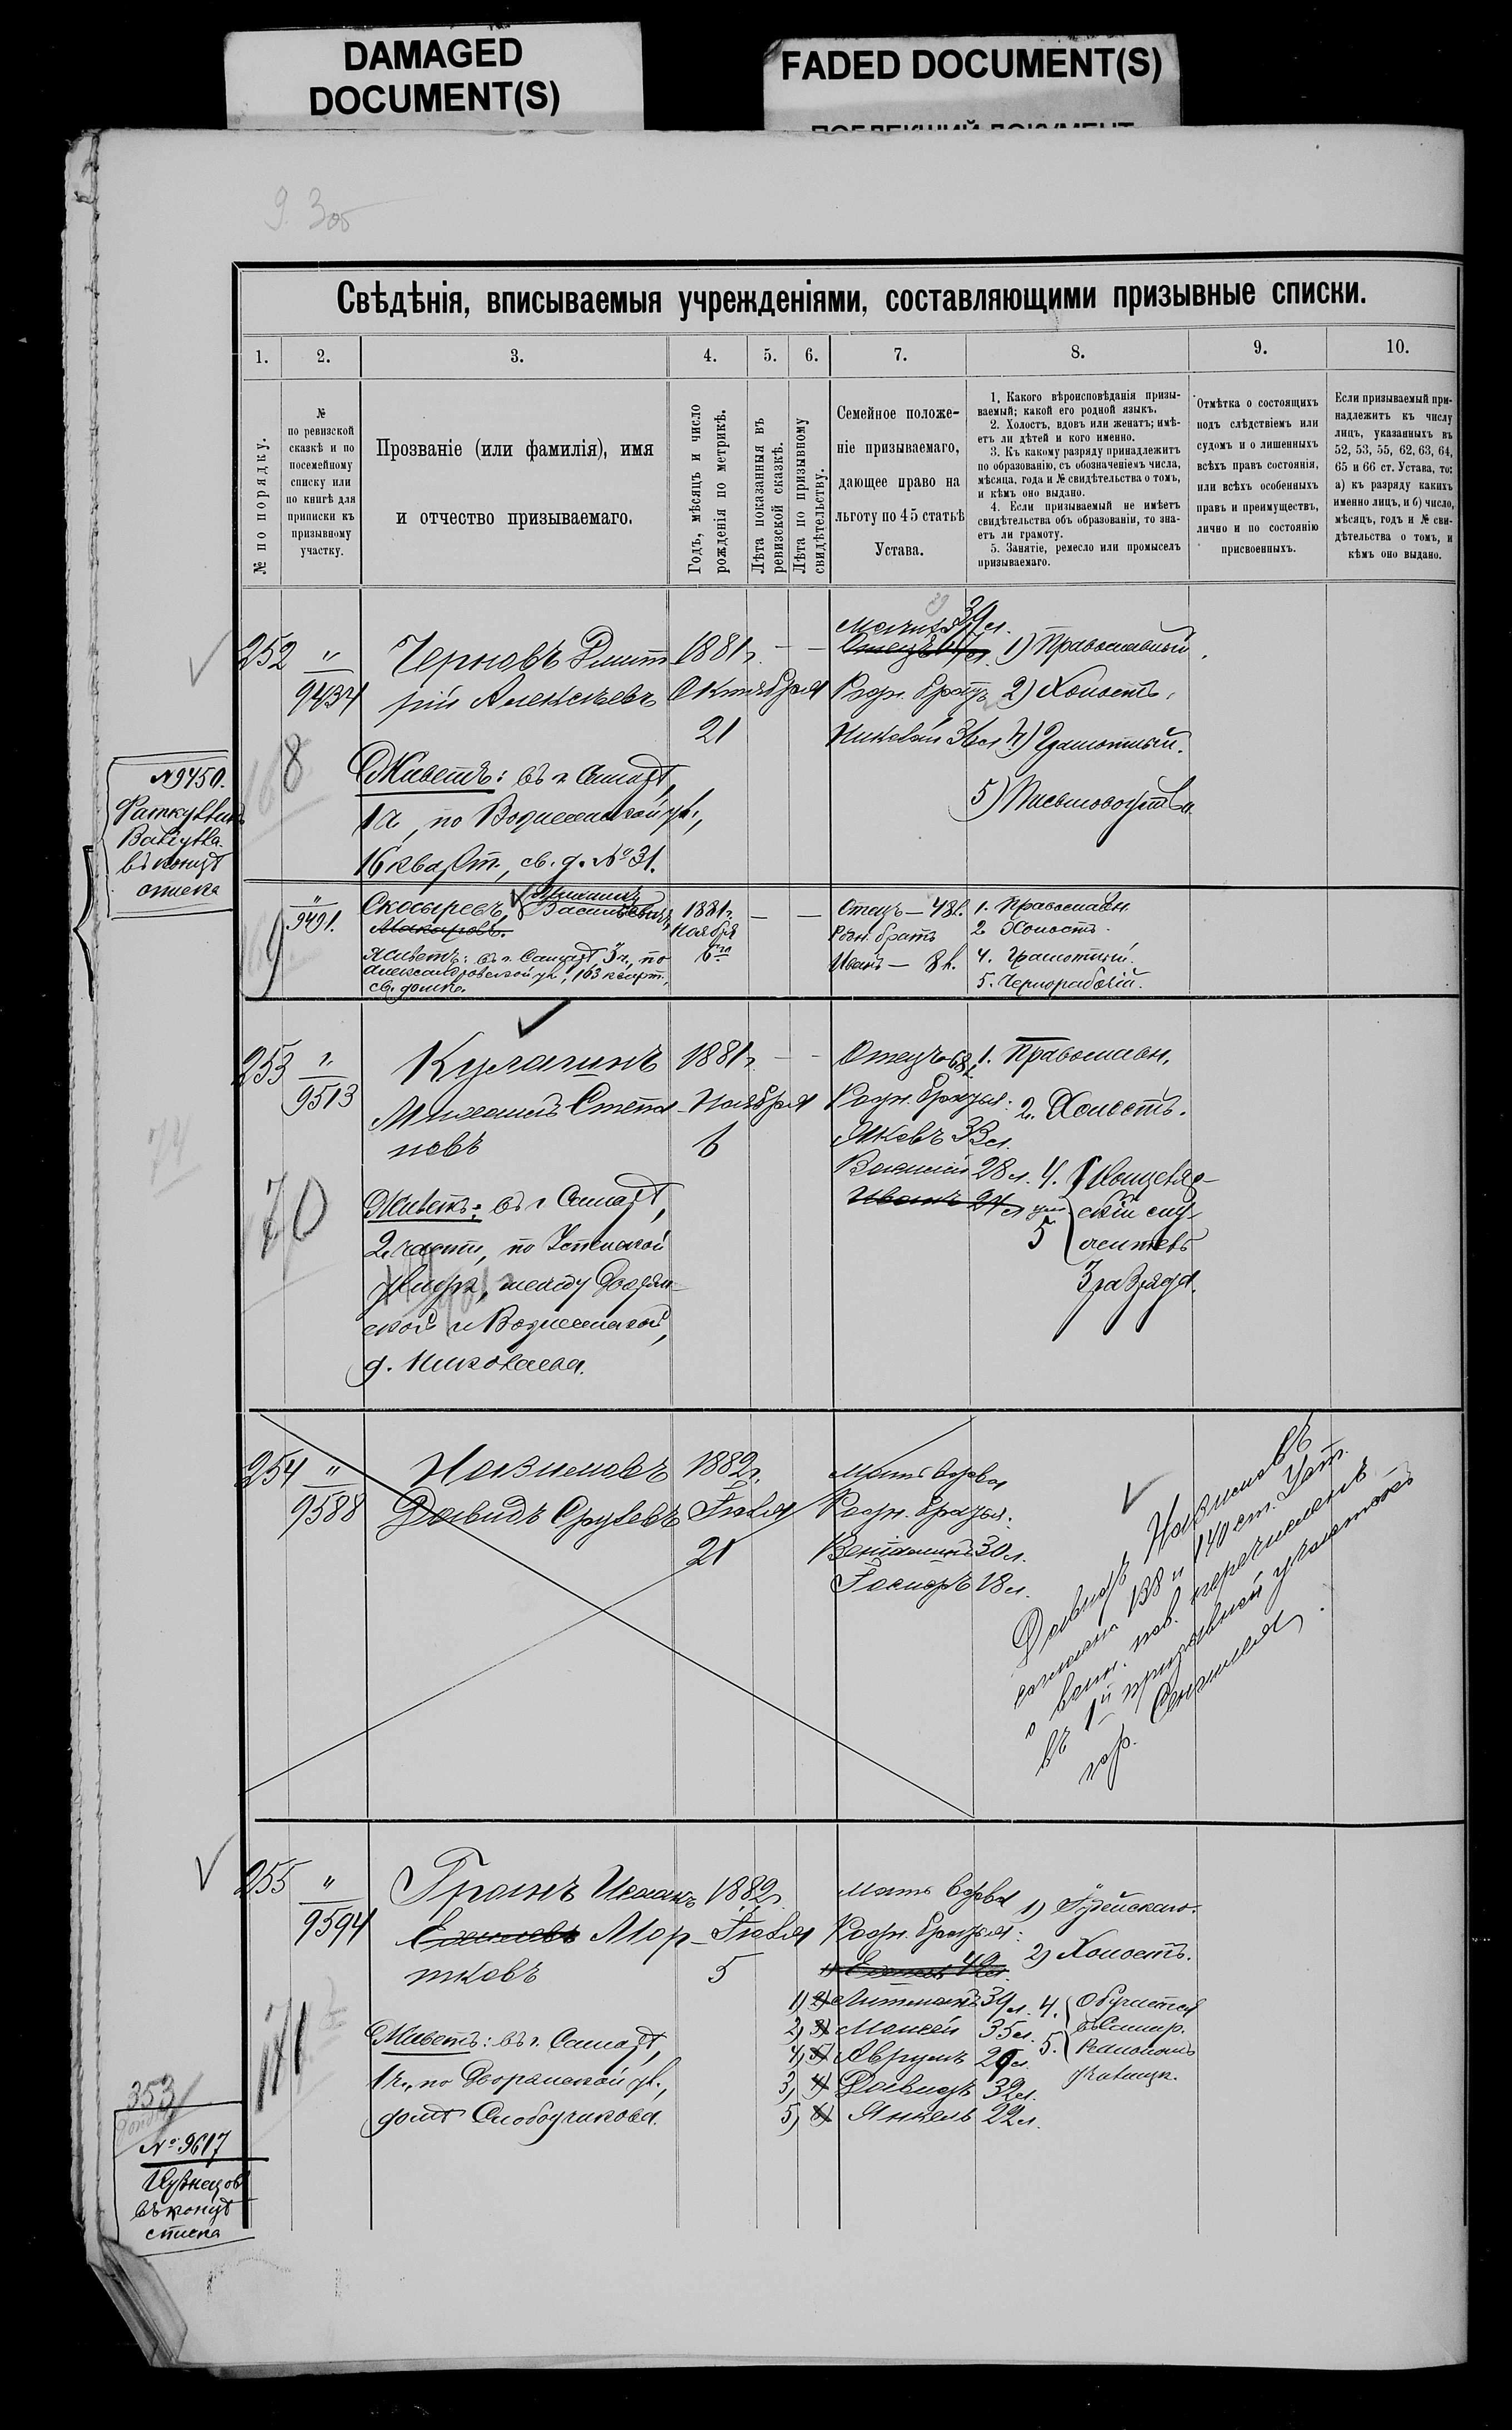 DAMAGED
DOCUMENT(S)
FADED DOCUMENT(S)
ПОБЛЕКШИЙ ДОКУМЕНТ
Свѣдѣнія, вписываемыя учрежденіями, составляющими призывные списки.
1. 2. 3. 4. 5. 6. 7. 8. 9. 10.
№ по порядку.
№
по ревизской
сказкѣ и по
посемейному
списку или
по книгѣ для
приписки къ
призывному
участку.
Прозваніе (или фамилія), имя
и отчество призываемаго.
Годъ, мѣсяцъ и число
рожденія по метрикѣ.
Лѣта показанныя въ
ревизской сказкѣ.
Лѣта по призывному
свидѣтельству.
Семейное положе-
ніе призываемаго,
дающее право на
льготу по 45 статьѣ
Устава.
1. Какого вѣроисповѣданія призы-
ваемый; какой его родной языкъ.
2. Холостъ, вдовъ или женатъ; имѣ-
етъ ли дѣтей и кого именно.
3. Къ какому разряду принадлежитъ
по образованію, съ обозначеніемъ числа,
мѣсяца, года и № свидѣтельства о томъ,
и кѣмъ оно выдано.
4. Если призываемый не имѣетъ
свидѣтельства объ образованіи, то зна-
етъ ли грамоту.
5. Занятіе, ремесло или промыселъ
призываемаго.
Отмѣтка о состоящихъ
подъ слѣдствіемъ или
судомъ и о лишенныхъ
всѣхъ правъ состоянія,
или всѣхъ особенныхъ
правъ и преимуществъ,
лично и по состоянію
присвоенныхъ.
Если призываемый при-
надлежитъ къ числу
лицъ, указанныхъ въ
52, 53, 55, 62, 63, 64,
65 и 66 ст. Устава, то:
а) къ разряду какихъ
именно лицъ, и б) число,
мѣсяцъ, годъ и № сви-
дѣтельства о томъ, и
кѣмъ оно выдано.
252 "
9434
Черновъ Дмит
рій Алексѣевъ
1881 г.
Октября
21
Родн. братъ
Николай 36 л.
1) Православный
2) Холостъ.
4) Грамотный.
5) Письмоводитель.
Живетъ: въ г. Самарѣ,
1 ч., по Вознесенской ул.,
16 кварт., св. д. № 31.
№ 9450.
въ концѣ
списка
"
9491.
Скосыревъ,
Васильевичъ
Макаровъ.
1881 г.
Ноября
6го
Отецъ — 48 л.
Родн. братъ
Иванъ — 8 л.
1. Православн.
2. Холостъ.
4. Грамотный.
5. Чернорабочій.
Живетъ: въ г. Самарѣ 3 ч., по
Александровской ул., 163 кварт.,
св. домъ.
253 "
9513
Кулагинъ
Михаилъ Степа
новъ
1881 г.
Ноября
6
Отецъ 68 л.
Родн. братья:
Яковъ 33 л.
Василій 28 л.
Иванъ 24 л.
1. Православн.
2. Холостъ.
4.
5
Канцеляр-
скій слу-
житель
3 разряда.
70
74
Живетъ: въ г. Самарѣ,
2 части, по Успенской
улицѣ, между Дворян-
ской и Вознесенской,
д. Николаева.
254 "
9588
Давидъ Срулевъ
1882 г.
Іюля
21
Мать вдова
Родн. братья:
Веніаминъ 30 л.
18 л.
Давидъ
138 и 140 ст. Уст.
о воин. пов. перечисленъ
въ 1й призывной участокъ
гор. Сенгилея.
255 "
9594
Гранъ Исаакъ
Мор-
тковъ
1882 г.
Іюля
5
Мать вдова
Родн. братья:
1) Литманъ 39 л.
2) Моисей 35 л.
4) Аврумъ 29 л.
3) Давидъ 32 л.
5) Янкель 22 л.
1) Іудейскаго.
2) Холостъ.
4.
5.
Обучается
въ Самар.
училищѣ.
171
Живетъ: въ г. Самарѣ,
1 ч., по Дворянской ул.,
домъ Слободчикова.
353
№ 9617
Кузнецовъ
въ концѣ
списка